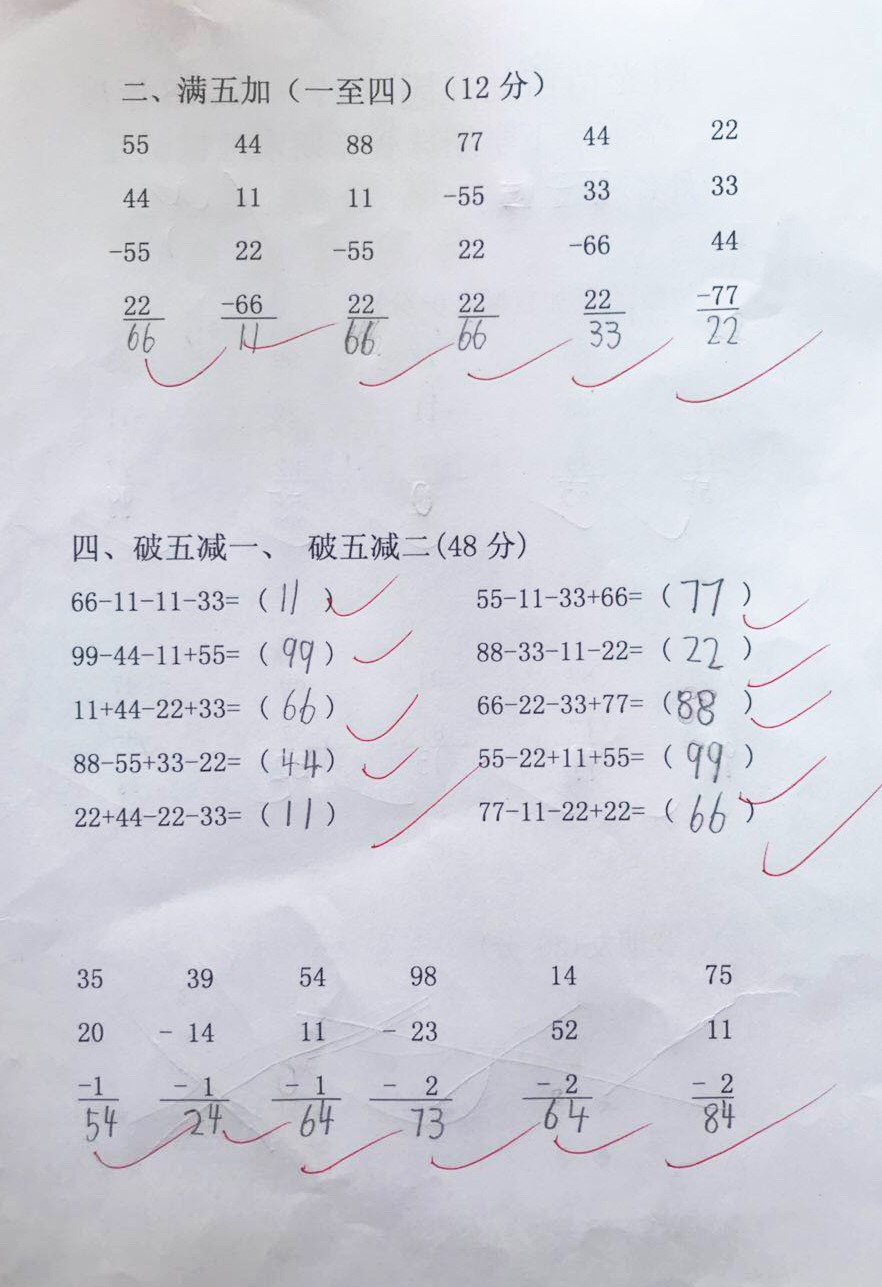 二、满五加（一至四）（12 分）
55 44 88 77 44 22
44 11 11 -55 33 33
-55 22 -55 22 -66 44
22 -66 22 22 22 -77
66 11 66 66 33 22
四、破五减一、 破五减二(48 分)
66-11-11-33=（11） 55-11-33+66=（77）
99-44-11+55=（99） 88-33-11-22=（22）
11+44-22+33=（66） 66-22-33+77=（88）
88-55+33-22=（44） 55-22+11+55=（99）
22+44-22-33=（11） 77-11-22+22=（66）
35 39 54 98 14 75
20 - 14 11 - 23 52 11
-1 - 1 - 1 - 2 - 2 - 2
54 24 64 73 64 84